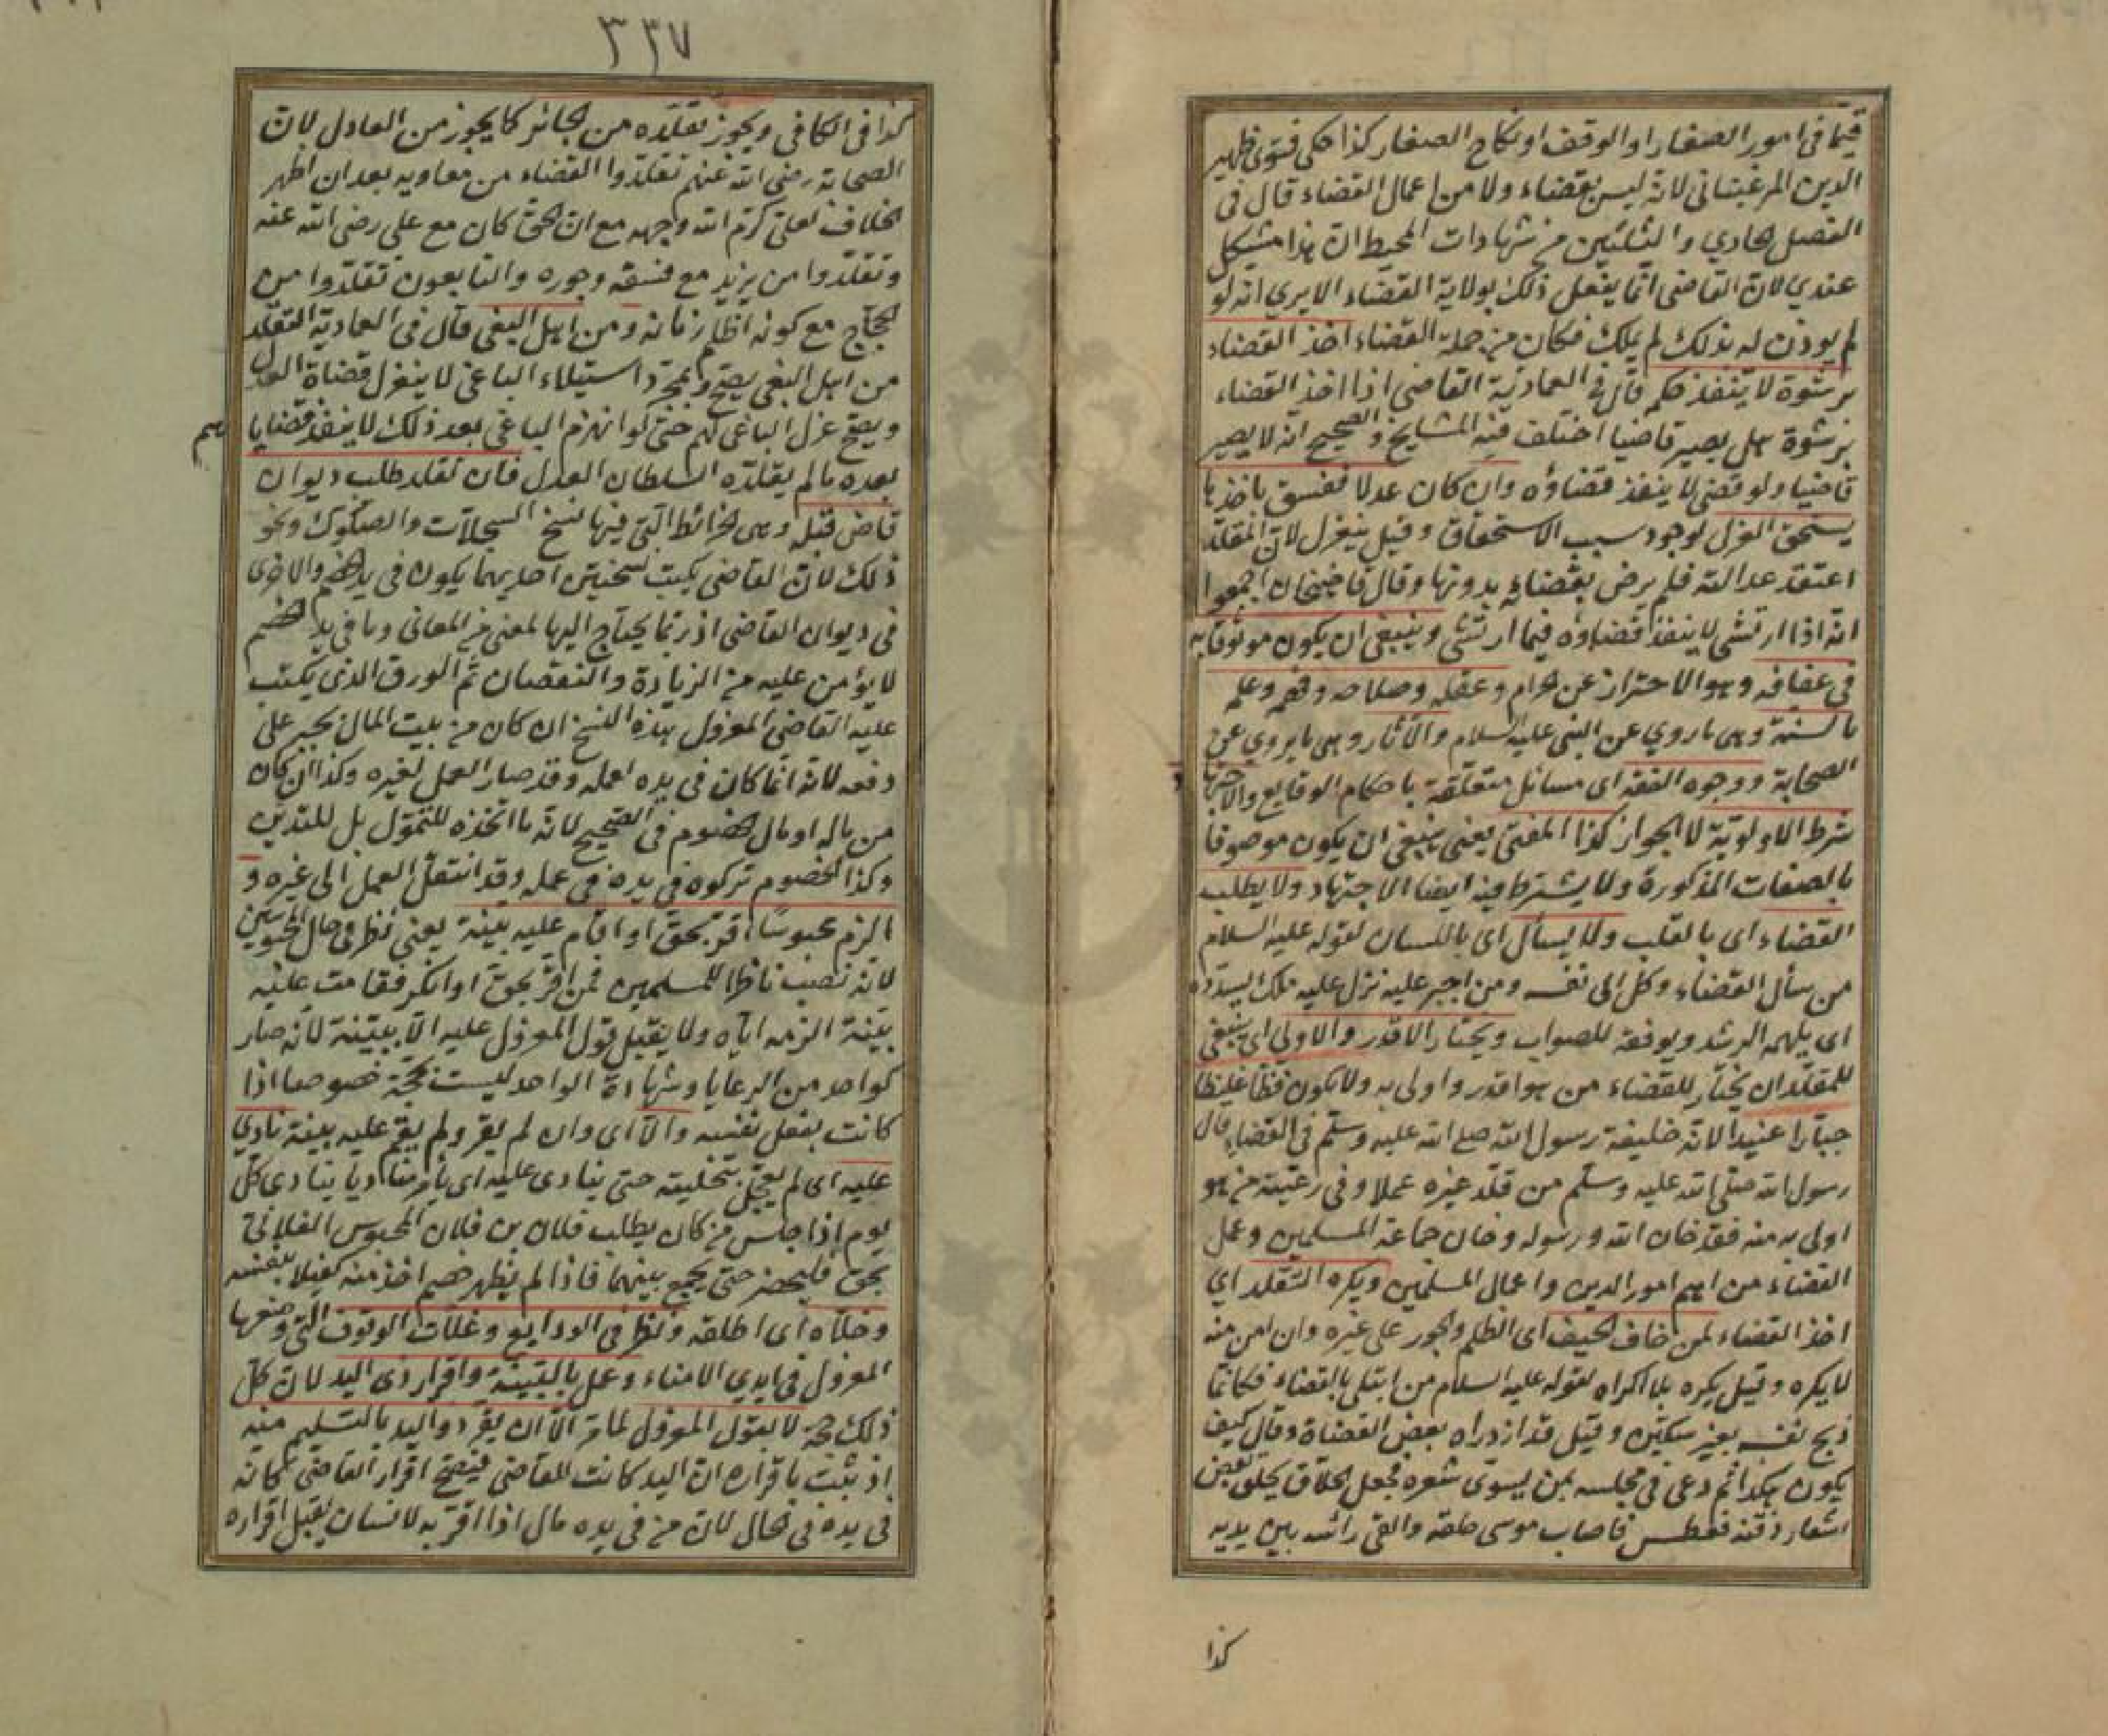 قيما في امور الصغار او الوقف او نكاح الصغار كذا حكى فتوى ظهير
الدين المرغيناني لانه ليس بقضاء ولا من اعمال القضاء قال في
الفصل الحادي والثلثين من شهادات المحيط ان هذا مشكل
عندي لان القاضي انما يفعل ذلك بولاية القضاء الا يري انه لو
لم يوذن له بذلك لم يملك فكان من جملة القضاء اخذ القضاء
برشوة لا ينفذ حكمه قال في العمادية القاضي اذا اخذ القضاء
برشوة هل يصير قاضيا اختلف فيه المشايخ والصحيح انه لا يصير
قاضيا ولو قضى لا ينفذ قضاؤه وان كان عدلا ففسق باخذها
يستحق العزل لوجود سبب الاستحقاق وقيل ينعزل لان المقلد
اعتقد عدالته فلم يرض بقضائه بدونها وقال قاضيخان اجمعوا
انه اذا ارتشى لا ينفذ قضاؤه فيما ارتشى وينبغي ان يكون موثوقا به
في عفافه وهو الاحتراز عن الحرام وعقله وصلاحه وفهمه وعلمه
بالسنة وهي ما روي عن النبي عليه السلام والآثار وهي ما يروي عن
الصحابة ووجوه الفقه اى مسائل متعلقة باحكام الوقايع والاجتهاد
شرط الاولوية لا الجواز كذا المفتى يعنى ينبغي ان يكون موصوفا
بالصفات المذكورة ولا يشترط فيه ايضا الاجتهاد ولا يطلب
القضاء اى بالقلب ولا يسأل اى باللسان لقوله عليه السلام
من سأل القضاء وكل الى نفسه ومن اجبر عليه نزل عليه ملك يسدده
اى يلهمه الرشد ويوفقه للصواب ويختار الاقدر والاولى اى ينبغي
للمقلد ان يختار للقضاء من هو اقدر واولى به ولا يكون فظا غليظا
جبارا عنيدا لانه خليفة رسول الله صلى الله عليه وسلم في القضاء قال
رسول الله صلى الله عليه وسلم من قلد غيره عملا وفي رعيته من هو
اولى به منه فقد خان الله ورسوله وخان جماعة المسلمين وعمل
القضاء من اهم امور الدين واعمال المسلمين ويكره التقلد اي
اخذ القضاء لمن خاف الحيف اى الظلم والجور على غيره وان امن منه
لا يكره وقيل يكره بلا اكراه لقوله عليه السلام من ابتلى بالقضاء فكانما
ذبح نفسه بغير سكين وقيل قد ازدراه بعض القضاة وقال كيف
يكون هكذا ثم دعى في مجلسه بمن يسوى شعره فجعل الحلاق يحلق بعض
اشعار ذقنه فعطس فاصاب موسى حلقه والقى رأسه بين يديه
كذا
٣٣٧
كذا في الكافي ويجوز تقلده من الجائر كما يجوز من العادل لان
الصحابة رضى الله عنهم تقلدوا القضاء من معاويه بعد ان اظهر
الخلاف لعلى كرم الله وجهه مع ان الحق كان مع علي رضى الله عنه
وتقلدوا من يزيد مع فسقه وجوره والتابعون تقلدوا من
الحجاج مع كونه اظلم زمانه ومن اهل البغى قال في العمادية التقلد
من اهل البغى يصح وبمجرد استيلاء الباغى لا ينعزل قضاة العدل
ويصح عزل الباغى لهم حتى لو انهزم الباغى بعد ذلك لا ينفذ قضاياهم
بعده ما لم يقلده السلطان العدل فان تقلد طلب ديوان
قاض قبله وهى الخرائط التى فيها نسخ السجلات والصكوك ونحو
ذلك لان القاضى يكتب نسختين احديهما يكون في يد الخصم والاخرى
في ديوان القاضى اذ ربما يحتاج اليها لمعنى من المعانى وما في يد الخصم
لا يؤمن عليه من الزيادة والنقصان ثم الورق الذى يكتب
عليه القاضى المعزول هذه النسخ ان كان من بيت المال يجبر على
دفعه لانه انما كان في يده لعمله وقد صار العمل لغيره وكذا ان كان
من ماله او مال الخصوم في الصحيح لانه ما اتخذه للتمول بل للتدين
وكذا الخصوم تركوه في يده في عمله وقد انتقل العمل الى غيره و
الزم محبوسا اقر بحق او اقام عليه بينة يعنى نظر في حال المحبوسين
لانه نصب ناظرا للمسلمين فمن اقر بحق او انكر فقامت عليه
بينة الزمه اياه ولا يقبل قول المعزول عليه الا ببينة لانه صار
كواحد من الرعايا وشهادة الواحد ليست بحجة خصوصا اذا
كانت بفعل نفسه والا اى وان لم يقر ولم يقم عليه بينة نادي
عليه اى لم يعجل بتخليته حتى ينادى عليه اى يأمر مناديا ينادى كل
يوم اذا جلس من كان يطلب فلان بن فلان المحبوس الفلاني
بحق فليحضر حتى يجمع بينهما فاذا لم يظهر خصم اخذ منه كفيلا بنفسه
وخلاه اى اطلقه ونظر في الودايع وغلات الوقوف التى وضعها
المعزول في ايدي الامناء وعمل بالبينة واقرار ذى اليد لان كل
ذلك حجة لا بقول المعزول لما مر الا ان يقر ذو اليد بالتسليم منه
اذ ثبت باقراره ان اليد كانت للقاضى فيصح اقرار القاضى كانه
في يده في الحال لان من في يده مال اذا اقر به لانسان يقبل اقراره